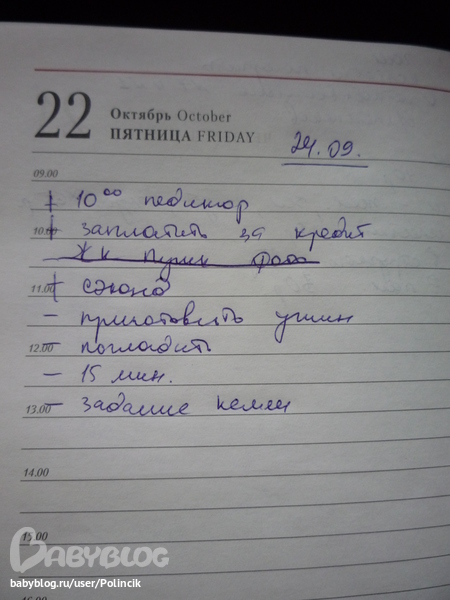 22
Октябрь October
ПЯТНИЦА FRIDAY
24.09.
09.00
+ 10⁰⁰ педикюр
10.00 + заплатить за кредит
ЖК
11.00 + сэконд
- приготовить ужин
12.00 - погладить
- 15 мин.
13.00 - задание
14.00
15.00
BABYBLOG
babyblog.ru/user/Polincik